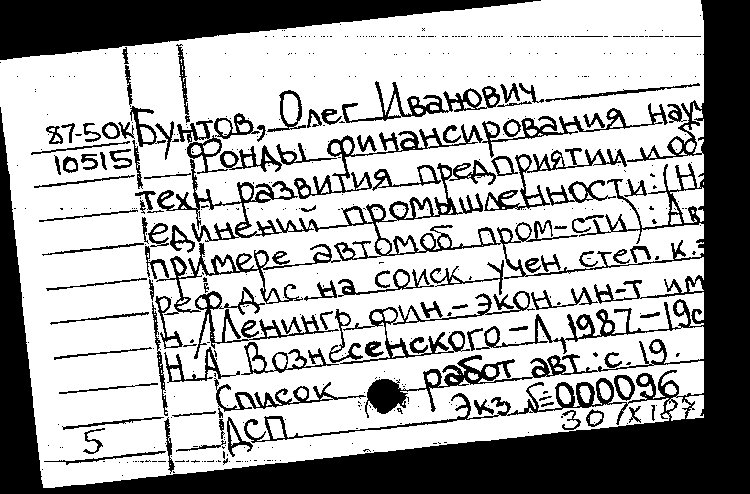 87-50к Бунтов, Олег Иванович
10515 Фонды финансирования науч
техн. развития предприятий и объ
единений промышленности: (На
примере автомоб. пром-сти) : Авт
реф. дис. на соиск. учен. степ. к.э
н. / Ленингр. фин.-экон. ин-т им
Н.А. Вознесенского.-Л., 1987.-19с
Список работ авт.: с. 19.
Экз. №000096
ДСП.
5 30/X 187